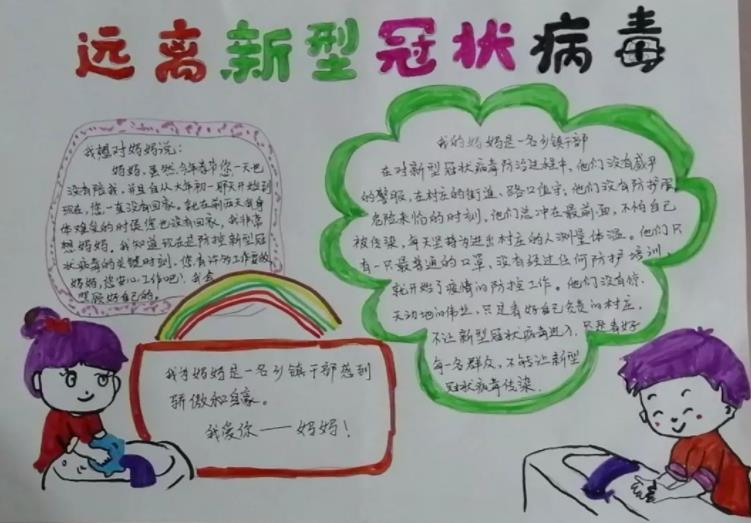 远离新型冠状病毒
我想对妈妈说:
妈妈,虽然今年春节您一天也
没有陪我,并且自从大年初一那天开始到
现在,您一直没有回家,就在前两天我身
体难受的时候您也没有回家,我非常
想妈妈,我知道现在是防控新型冠
状病毒的关键时刻,您有许多工作要做,
妈妈,您安心工作吧!我会
照顾好自己的。
我的妈妈是一名乡镇干部
在对新型冠状病毒防治过程中,他们没有威严
的警服,在村庄的街道、路口值守;他们没有防护服
危险来临的时刻,他们总冲在最前面,不怕自己
被传染,每天坚持为进出村庄的人测量体温。他们只
有一只最普通的口罩,没有经过任何防护培训,
就开始了疫情的防控工作。他们没有惊
天动地的伟业,只是看好自己负责的村庄,
不让新型冠状病毒进入,只是看好
每一名群众,不能让新型
冠状病毒传染.
我为妈妈是一名乡镇干部感到
骄傲和自豪。
我爱你——妈妈!